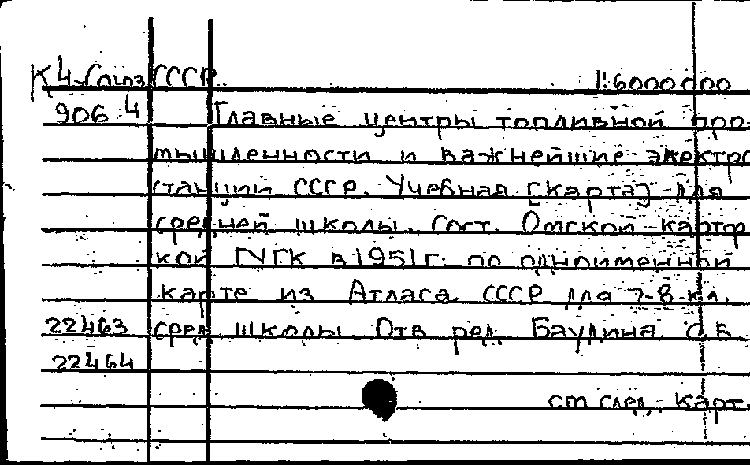 К 4-Союз СССР. 1:6000000
906 4 Главные центры топливной про-
мышленности и важнейшие электро
станции СССР. Учебная [карта] для
средней школы. Сост. Омской картогр
кой ГУГК в 1951 г. по одноименной
карте из Атласа СССР для 7-8 кл.
22463 сред школы Отв ред. Баудина С.Б.
22464
см след. карт.